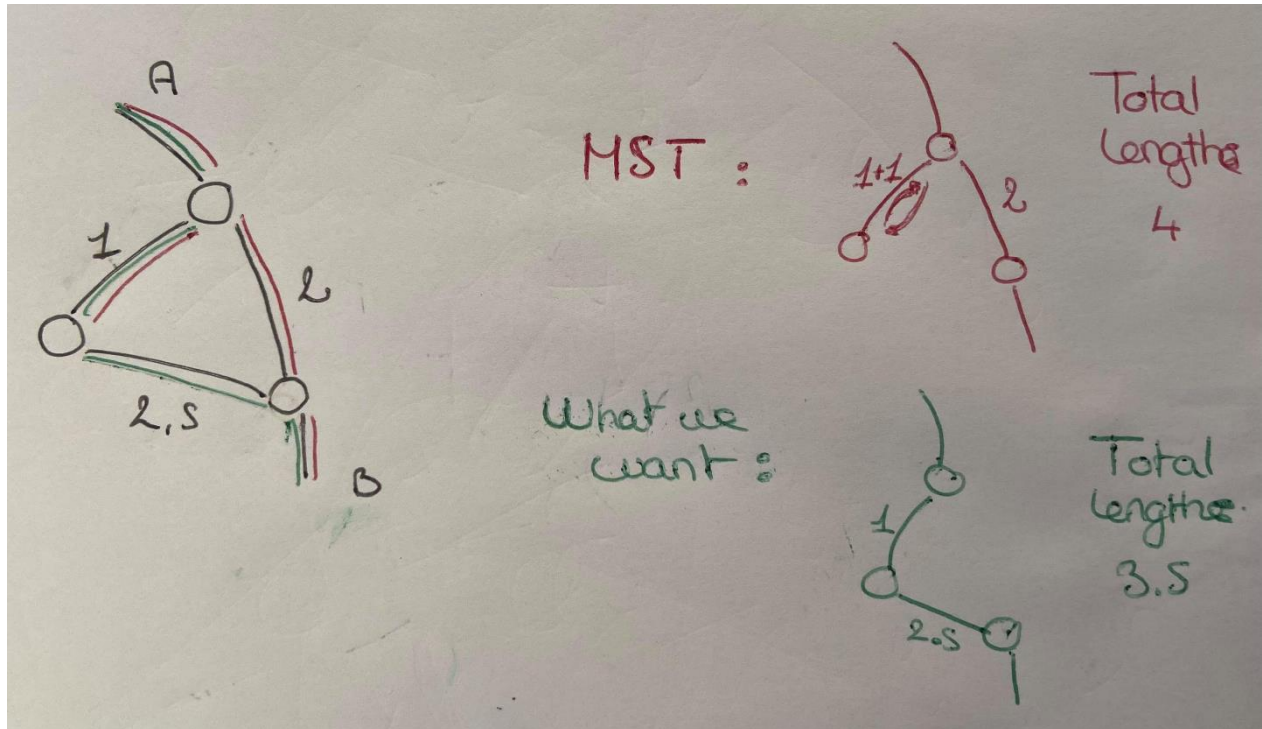 A
1
2
2,5
B
MST :
1+1
2
Total
lengths
4
What we
want :
1
2.5
Total
lengths
3.5